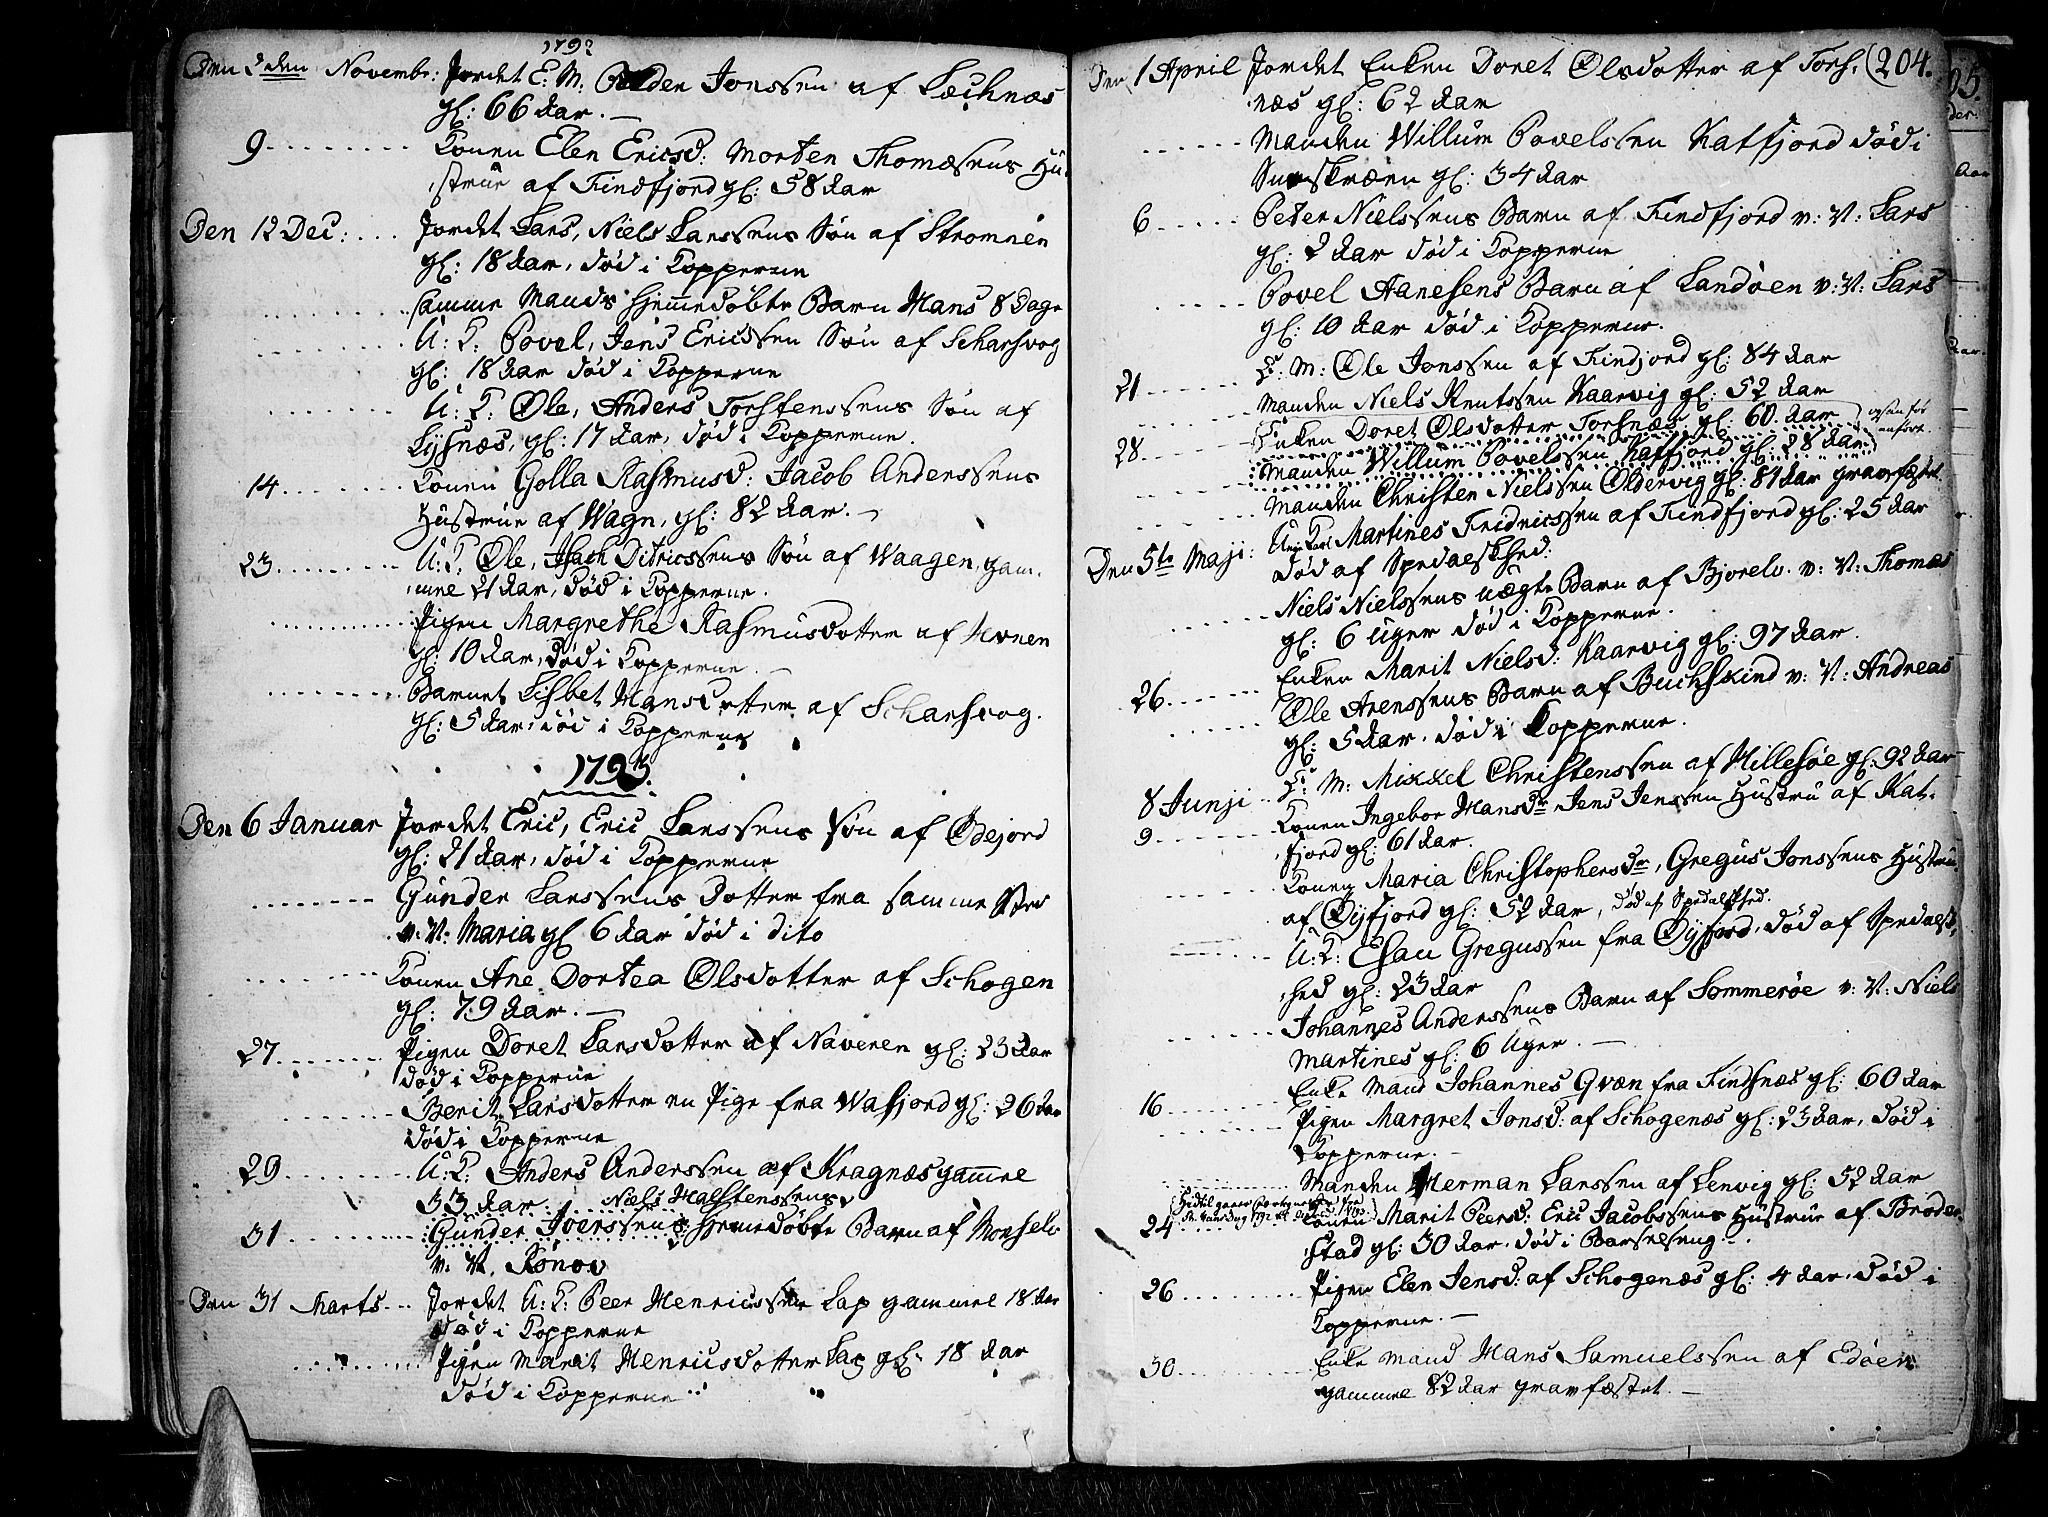 1792
Den 2den Novembr: Jordet E. M. Peder Jonssen af Læchnæs
gl: 66 Aar. —
9 Konen Elen Ericsd: Morten Thomæsens Hu-
strue af Findfjord gl: 58 Aar
Den 12 Dec: Jordet Lars, Niels Larssens Søn af Strømmen
gl: 18 Aar, død i Kopperne
samme Mands hjemmedøbte Barn Hans 8 Dage
U: K. Povel, Jens Ericssen Søn af Scharsvog
gl: 18 Aar død i Kopperne
U: K: Ole, Anders Torstenssens Søn af
Lysnæs, gl: 17 Aar, død i Kopperne.
14 Konen Golla Rasmusd: Jacob Anderssens
Hustrue af Wagn, gl: 82 Aar. —
23 U: K. Ole, Isach Ditricssens Søn af Waagen, gam-
mel 21 Aar, død i Kopperne.
Pigen Margrethe Rasmusdotter af
gl: 10 Aar, død i Kopperne. —
Barnet Lisbet Hansdotter af Scharsvog.
gl: 5 Aar, død i Kopperne
1793.
Den 6 Januar Jordet Eric, Eric Larssens Søn af Ødejord
gl: 21 Aar, død i Kopperne
Gunder Larssens Dotter fra samme Sted
v: N: Maria gl 6 Aar død i dito
Konen Ane Dortea Olsdotter af Schogen
gl: 79 Aar. —
27 Pigen Doret Larsdotter af Naveren gl: 23 Aar
død i Kopperne
Berit Larsdotter en Pige fra Wasjord gl: 26 Aar
død i Kopperne
29 U: K. Anders Anderssen af Kragnæs gammel
33 Aar. Niels Halstenssens
31 Gunder Joerssens hjemedøbte Barn af Monselv
v: N. Rønov
Den 31 Marts Jordet U: K: Peer Henricssen Lap gammel 18 Aar
død i Kopperne
Pigen Marit Henricsdotter Lap gl: 18 Aar
død i Kopperne
204.
Den 1 April Jordet Enken Doret Olsdotter af Tors-
næs gl: 62 Aar
Manden Willum Povelssen Katfjord død i
gl: 34 Aar
6 Peter Nielssens Barn af Findfjord v: N: Lars
gl: 2 Aar død i Kopperne
Povel Aanesens Barn af Sandøen v: N: Lars
gl: 10 Aar død i Kopperne.
21 E: M: Ole Jonssen af Findjord gl: 84 Aar
Manden Niels Knutssen Kaarvig gl: 52 Aar
28 Enken Doret Olsdotter Torsnæs gl: 60. Aar
Manden Willum Povelssen Katfjord gl: 28 Aar
Manden Christen Nielssen Oldervig gl: 81 Aar gravfæstet.
Den 5te Maji: Ung Karl Martines Fridricssen af Findfjord gl: 25 Aar
død af Spedalskhed:
Niels Nielssens uægte Barn af Bjorelv. v: N: Thomas
gl: 6 Uger død i Kopperne.
Enken Marit Nielsd: Kaarvig gl: 97 Aar.
26 Ole Arenssens Barn af Buchskind v: N: Andreas
gl: 5 Aar, død i Kopperne.
8 Junji E: M: Mikkel Christenssen af Hillesøe gl: 92 Aar
9 Konen Ingebor Hansdr Jens Jenssen Hustru af Kat-
fjord gl: 61 Aar.
Konen Maria Christophersdr, Gregus Jonssens Hustru.
af Øyfjord gl: 52 Aar, død af Spedalskhed.
U: K: Esau Gregussen fra Øyfjord, død af Spedalsk-
hed gl: 23 Aar
Johannes Anderssens Barn af Sommerøe v: N: Niels
Martines gl: 6 Uger. —
16 Enke Mand Johannes Qvæn fra Findsnæs gl: 60 Aar
Pigen Margret Jonsd: af Schogenæs gl: 23 Aar, død i
Kopperne. —
Manden Herman Larssen af Lenvig gl: 52 Aar
24 Konen Marit Peersd: Eric Jacobssens Hustrue af Brøder-
stad gl: 30 Aar, død i Barselseng. —
26 Pigen Elen Jensd: af Schogenæs gl: 4 Aar, død i
Kopperne. —
30 Enke Mand Hans Samuelssen af Edøen
gammel 82 Aar gravfæstet. —